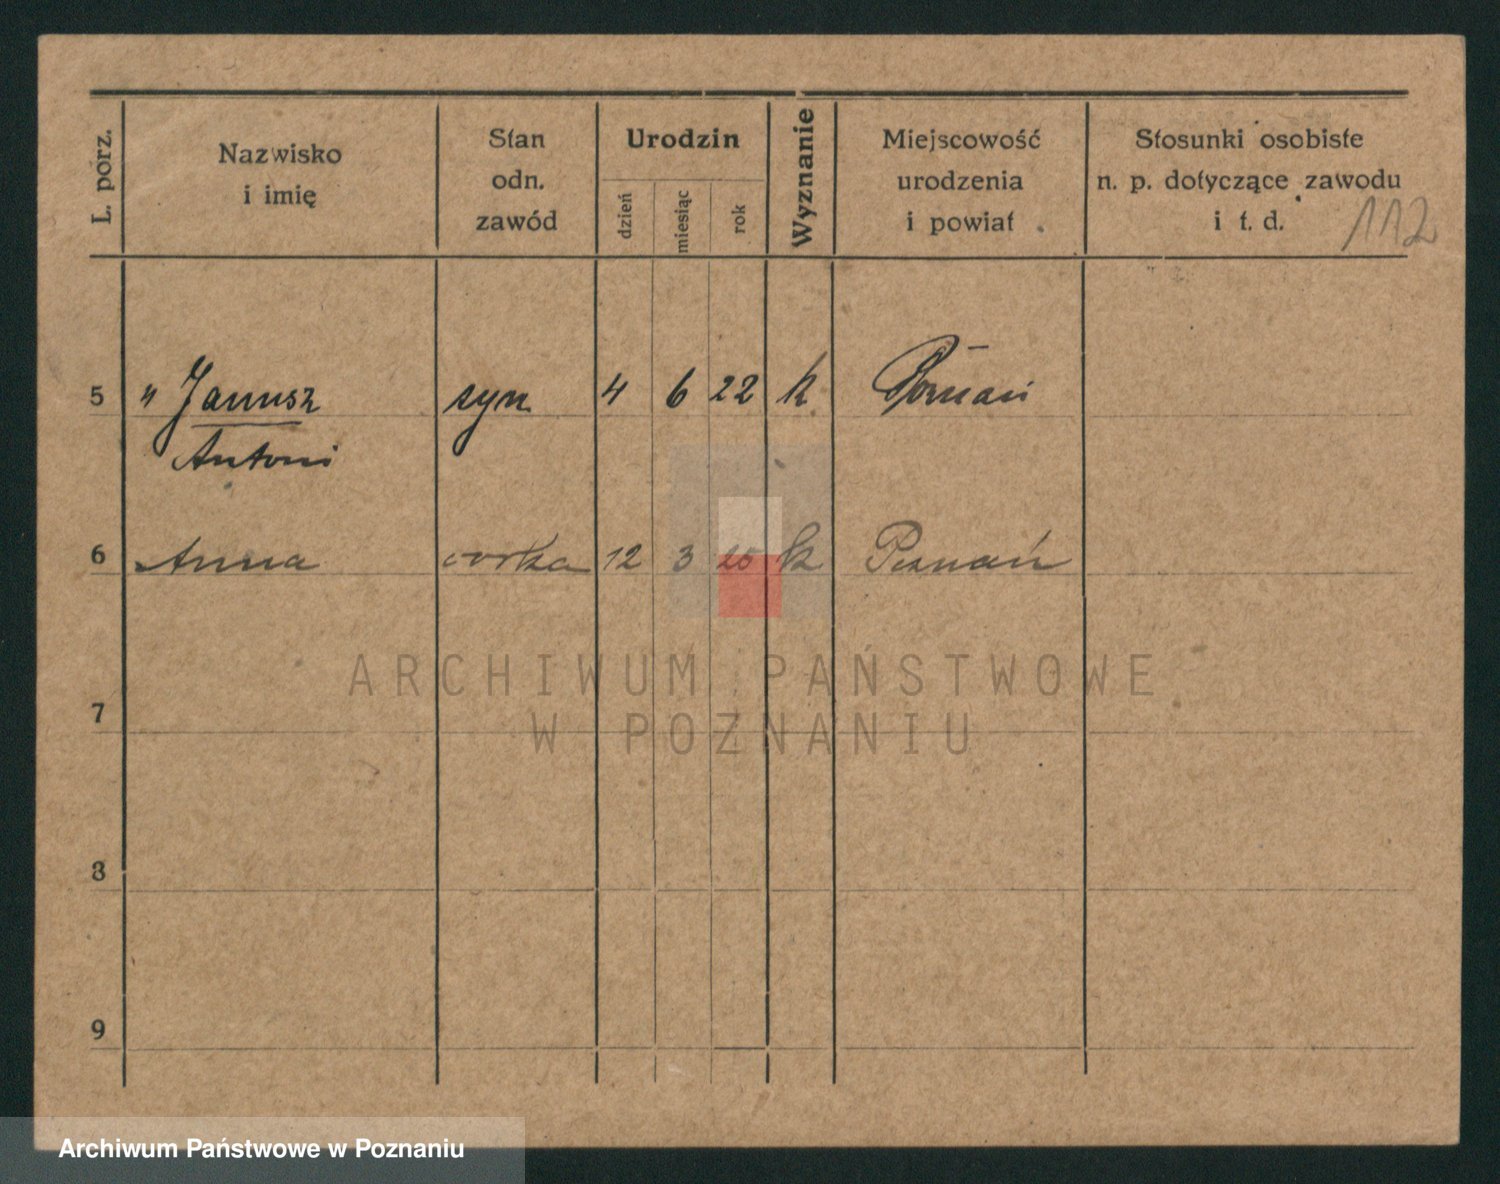 L. porz.
Nazwisko
i imię
Stan
odn.
zawód
Urodzin
dzień
miesiąc
rok
Wyznanie
Miejscowość
urodzenia
i powiat
Stosunki osobiste
n. p. dotyczące zawodu
i t. d.
112
5 " Janusz syn 4 6 22 k Poznań
Antoni
6 Anna corka 12 3 25 k Poznań
ARCHIWUM PAŃSTWOWE
W POZNANIU
7
8
9
Archiwum Państwowe w Poznaniu